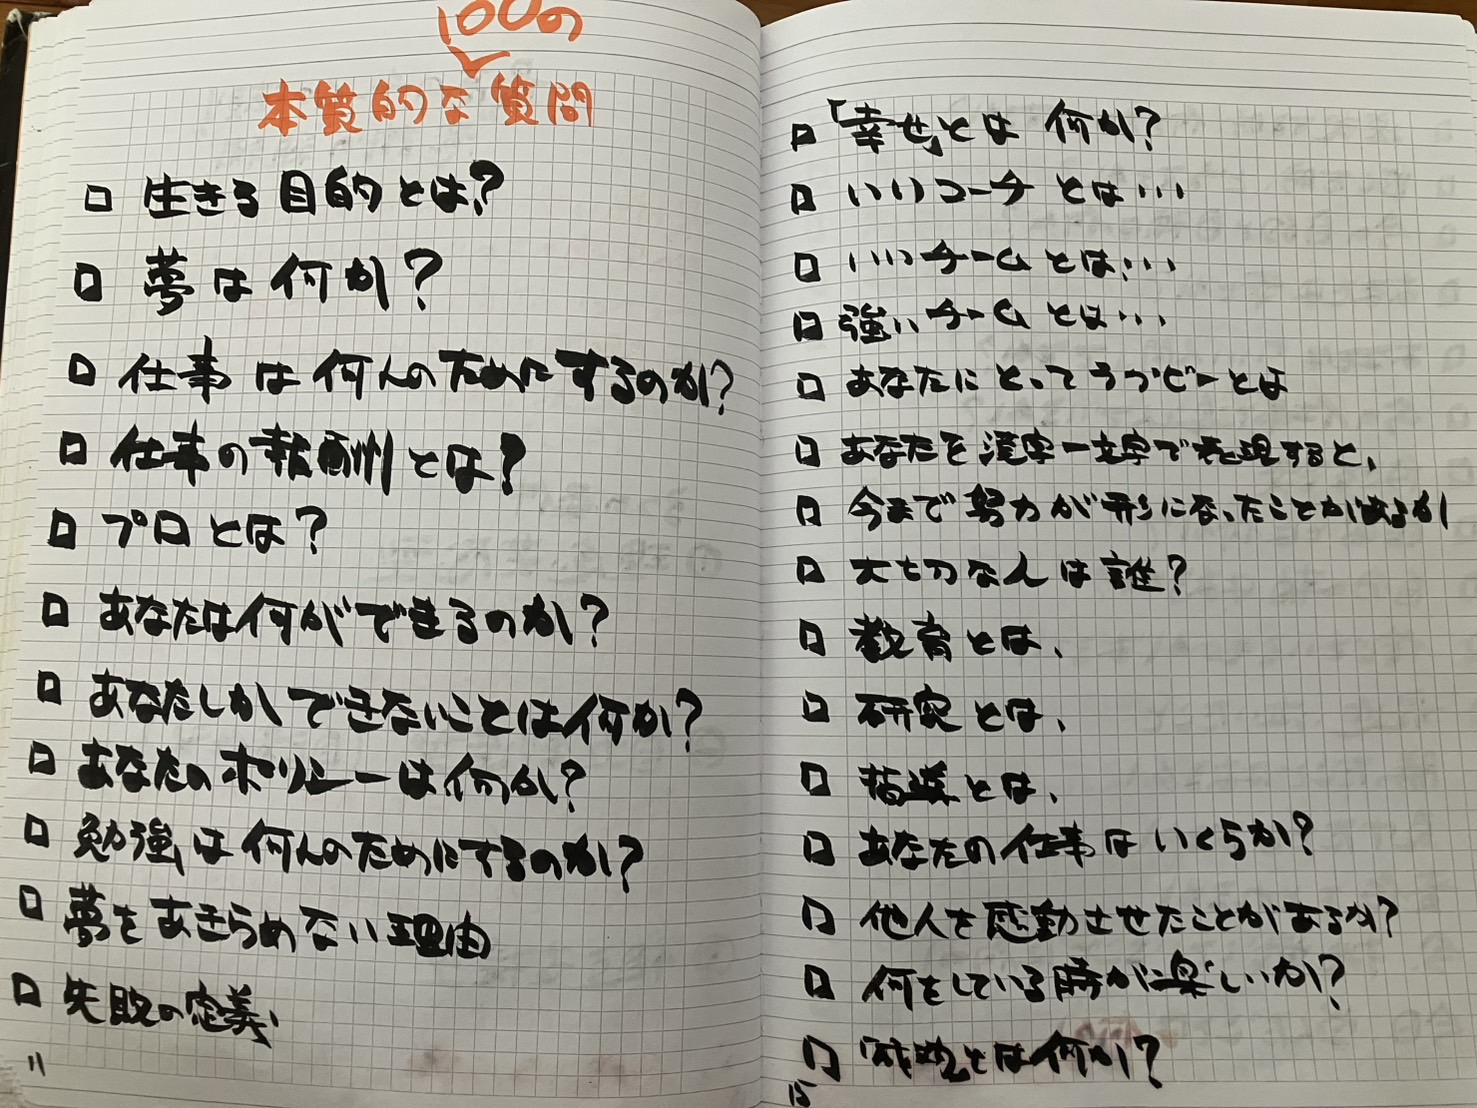 100の
本質的な質問
□ 生きる目的とは?
□ 夢は何か?
□ 仕事は何んのためにするのか?
□ 仕事の報酬とは?
□ プロとは?
□ あなたは何ができるのか?
□ あなたしかできないことは何か?
□ あなたのポリシーは何か?
□ 勉強は何んのためにするのか?
□ 夢をあきらめない理由
□ 失敗の定義
11
□ 「幸せ」とは 何か?
□ いいコーチとは…
□ いいチームとは…
□ 強いチームとは…
□ あなたにとってラグビーとは
□ あなたを漢字一文字で表現すると、
□ 今まで努力が形になったことがあるか
□ 大切な人は誰?
□ 教育とは、
□ 研究とは、
□ 指導とは、
□ あなたの仕事はいくらか?
□ 他人を感動させたことがあるか?
□ 何をしている時が楽しいか?
□ 「成功」とは何か?
15